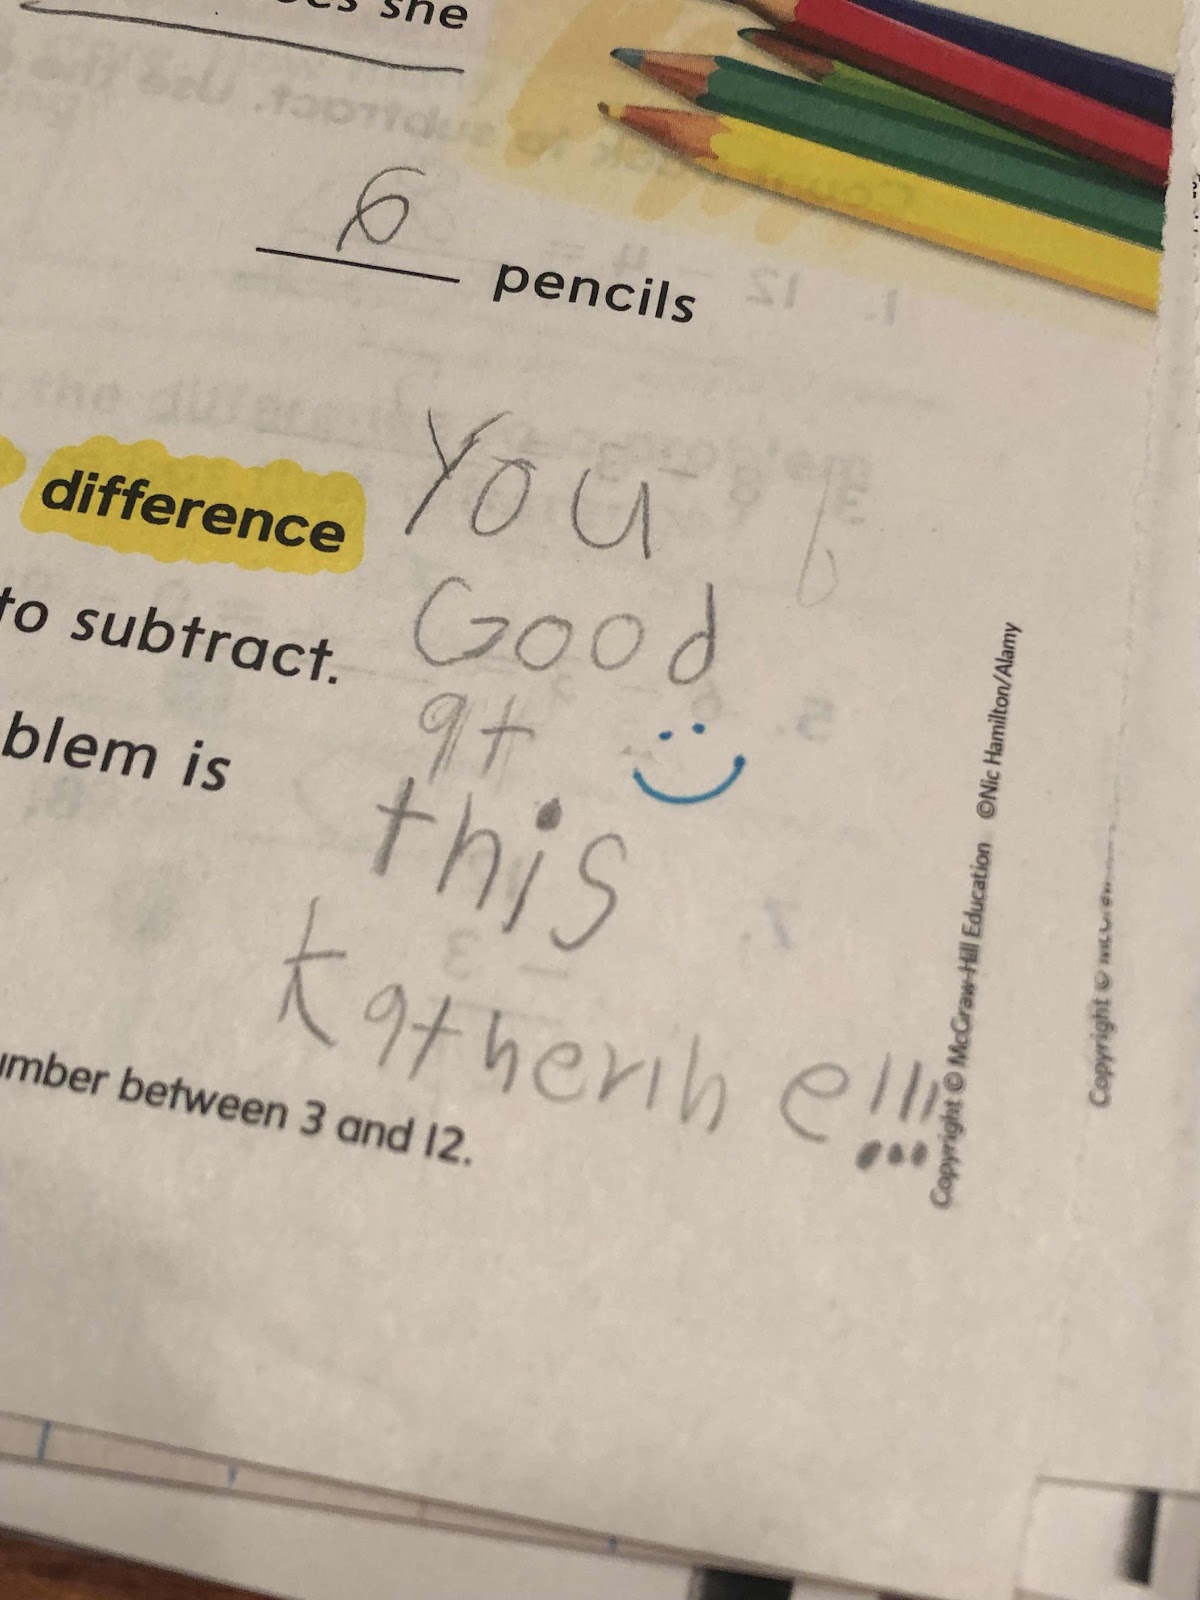 she
6 pencils
difference
to subtract.
blem is
umber between 3 and 12.
You
Good
at
this
katherine!!!
Copyright © McGraw-Hill Education ©Nic Hamilton/Alamy
Copyright ©